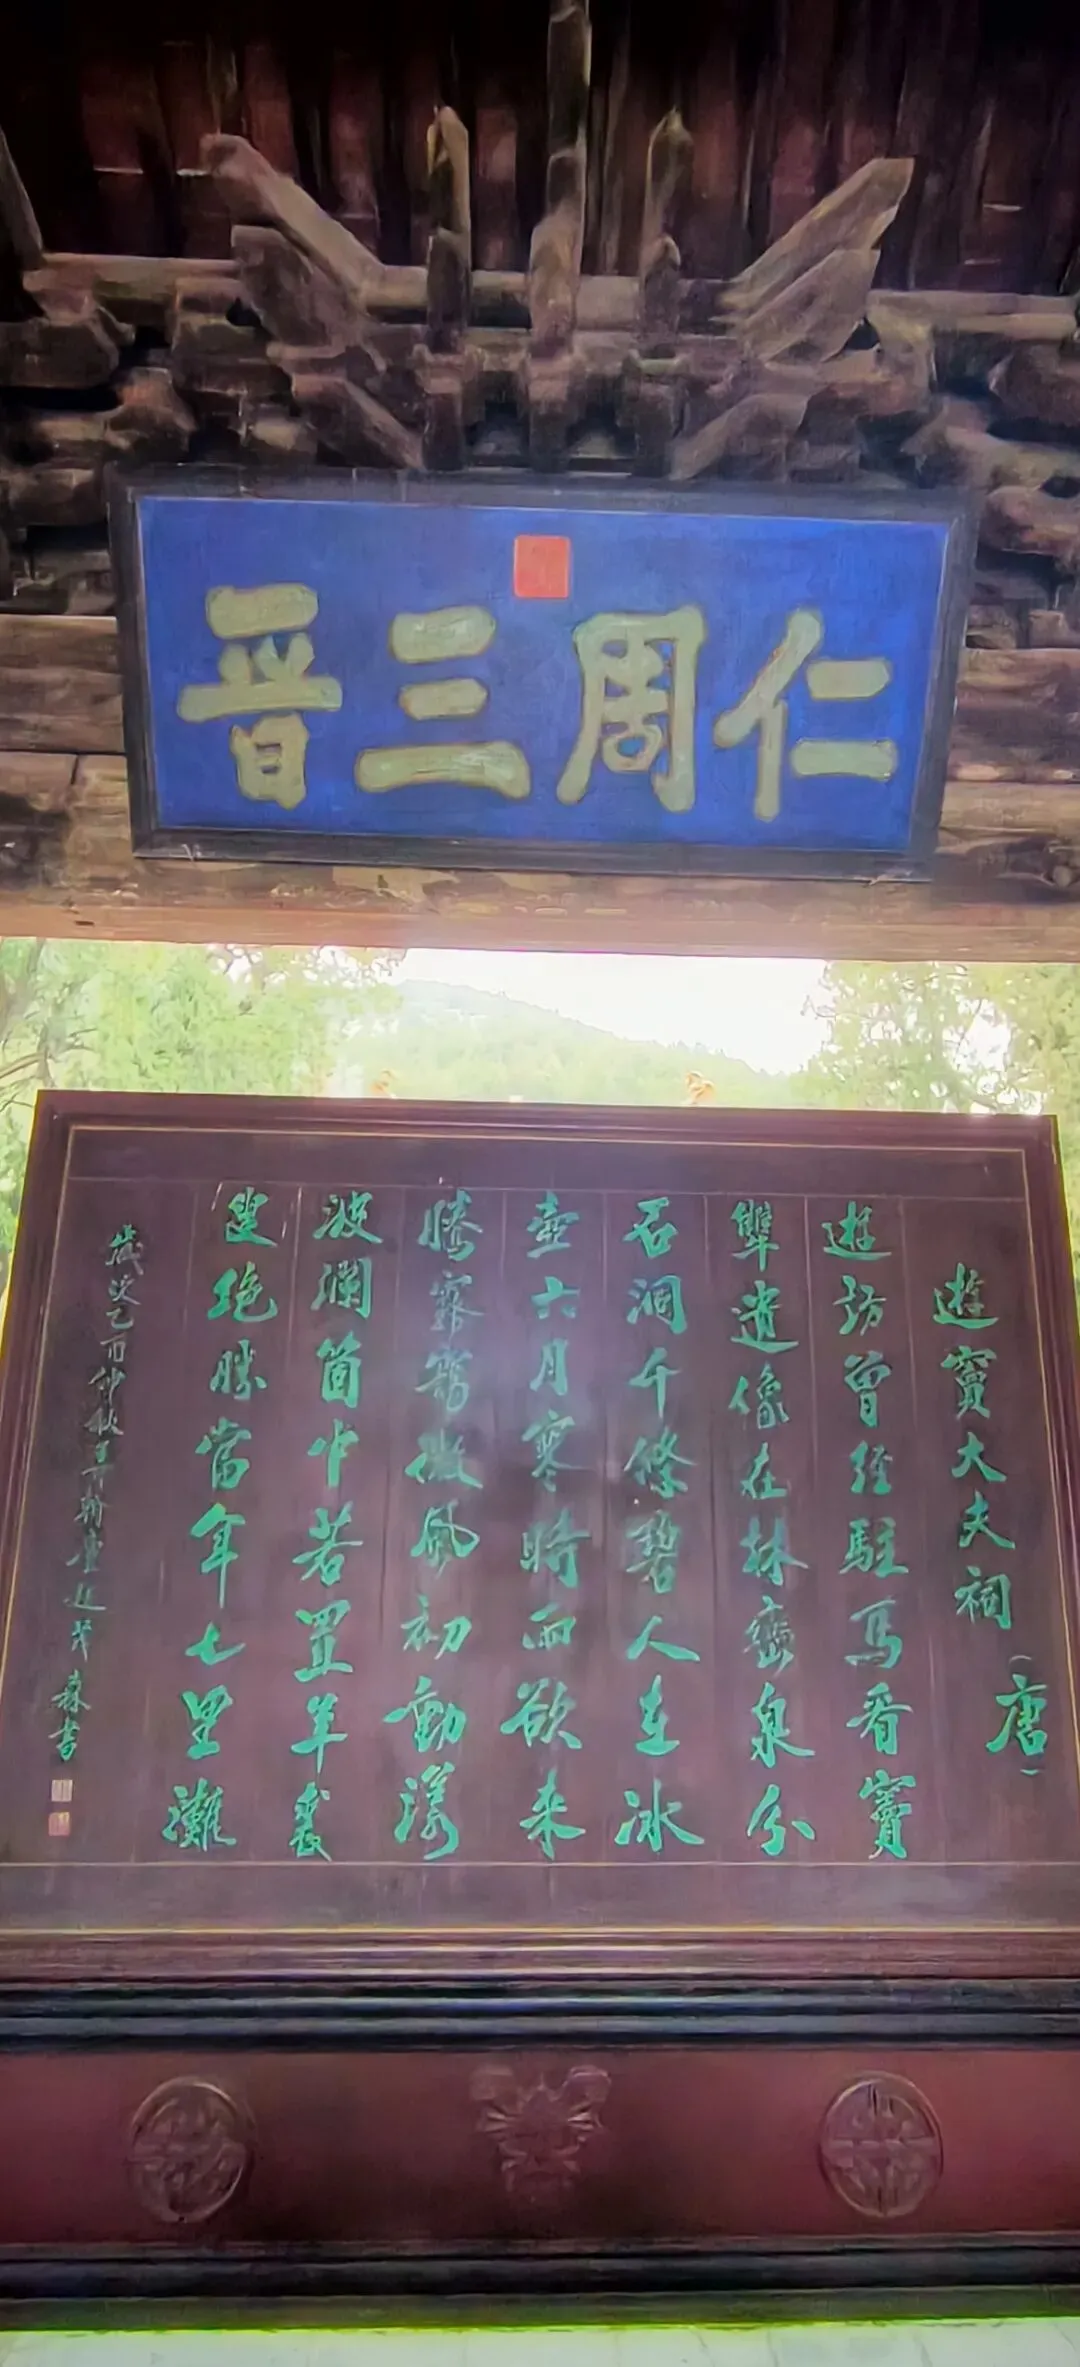 仁周三晋
遊竇大夫祠
(唐)
遊訪曾經駐馬看竇
犨遺像在林巒泉分
石洞千條碧人在冰
壺六月寒時雨欲來
騰霧靄微風初動漾
波瀾箇中若置羊裘
叟絶勝當年七里灘
歲次乙酉 秋 森書